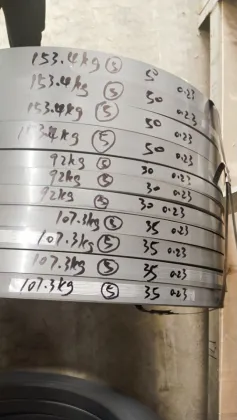 153.4kg ⑤ 50 0.23
153.4kg ⑤ 50 0.23
153.4kg ⑤ 50 0.23
153.4kg ⑤ 50 0.23
92kg ⑤ 30 0.23
92kg ⑤ 30 0.23
92kg ⑤ 30 0.23
107.3kg ⑤ 35 0.23
107.3kg ⑤ 35 0.23
107.3kg ⑤ 35 0.23
107.3kg ⑤ 35 0.23